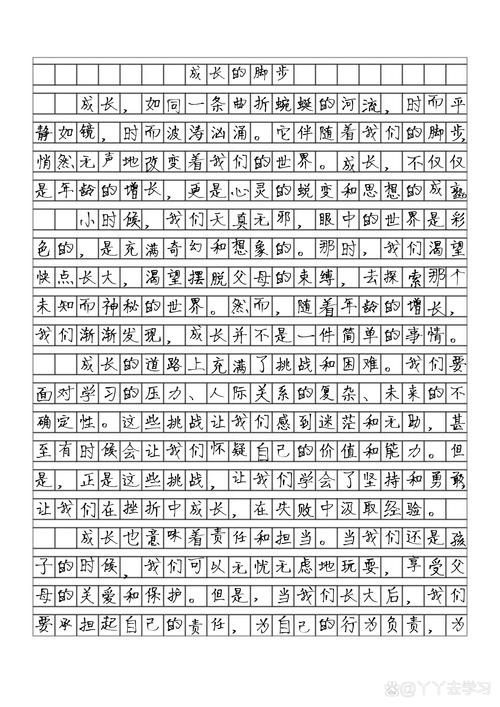 成长的脚步
成长，如同一条曲折蜿蜒的河流，时而平
静如镜，时而波涛汹涌。它伴随着我们的脚步，
悄然无声地改变着我们的世界。成长，不仅仅
是年龄的增长，更是心灵的蜕变和思想的成熟
小时候，我们天真无邪，眼中的世界是彩
色的，是充满奇幻和想象的。那时，我们渴望
快点长大，渴望摆脱父母的束缚，去探索那个
未知而神秘的世界。然而，随着年龄的增长，
我们渐渐发现，成长并不是一件简单的事情。
成长的道路上充满了挑战和困难。我们要
面对学习的压力、人际关系的复杂、未来的不
确定性。这些挑战让我们感到迷茫和无助，甚
至有时候会让我们怀疑自己的价值和能力。但
是，正是这些挑战，让我们学会了坚持和勇敢
让我们在挫折中成长，在失败中汲取经验。
成长也意味着责任和担当。当我们还是孩
子的时候，我们可以无忧无虑地玩耍，享受父
母的关爱和保护。但是，当我们长大后，我们
要承担起自己的责任，为自己的行为负责，为
@丫丫去学习